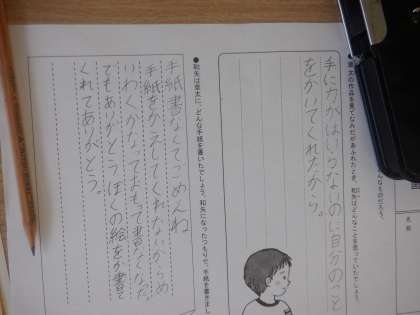 んなものだろう。
●章太の作品を見てなみだがあふれたとき、和矢はどんなことを思っていたでしょう。
手に力がはいらないのに自分のこと
をかいてくれたから。
●和矢は章太に、どんな手紙を書いたでしょう。和矢になったつもりで、手紙を書きまし
手紙書なくてごめんね
手紙をかえしてくれないからめ
いわくかなっておもって書なくかった
でもありがとうぼくの絵をか書て
くれてありがとう。